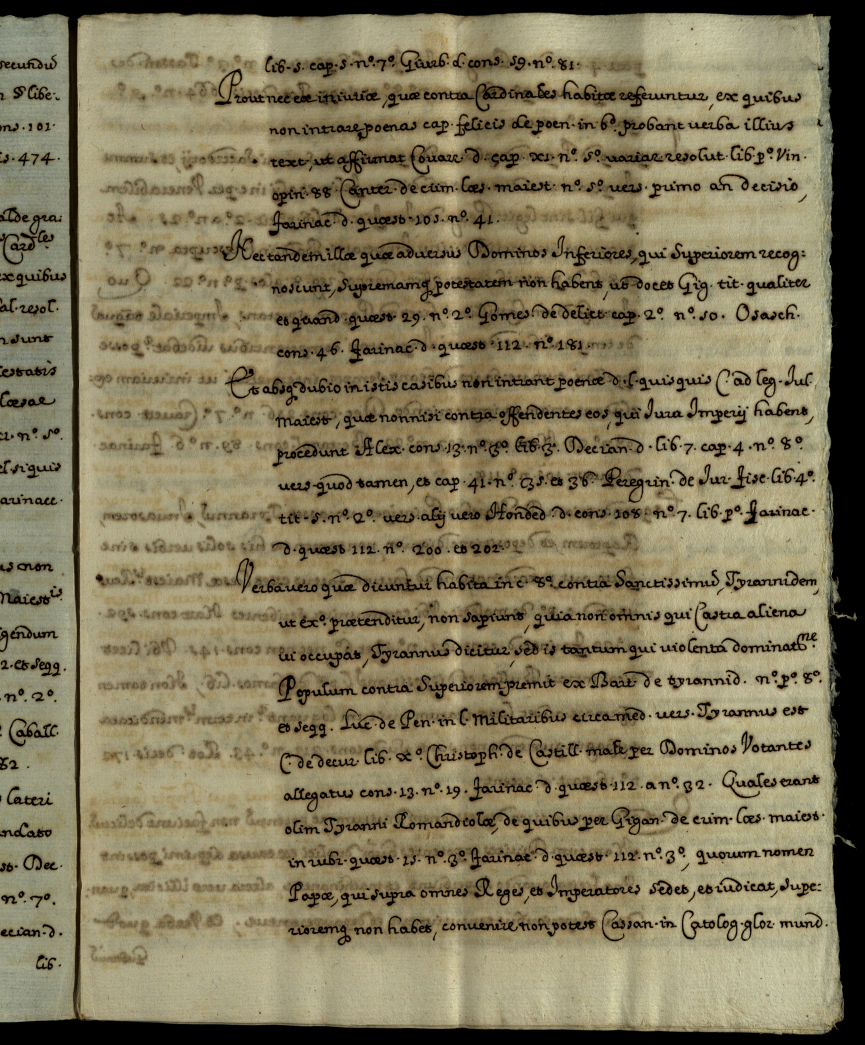 secundũ
n & libe:
ons. 101.
is. 474.
alde gra:
Card.les
ex quibus
al. resol.
n sunt
iestatis
læsae
ci. n.º 5.º
el si quis
arinacc.
us non
Maiest.is
igendum
2. et seqq.
n.º 2.º
Caball.
82.
lateri
ndato
st. Dec.
n.º 7.º
ecian. d.
lib.
lib. 5. cap. 5. n.º 7.º Giurb. d. cons. 59. n.º 81.
Prout nec eæ iniuriæ, quæ contra Cardinales habitæ referuntur, ex quibus
non intrare poenas cap. felicis de poen. in 6.º probant verba illius
text. ut affirmat Couar. d. cap. xi. n.º 5.º variar. resolut. lib. p.º Vin.
opin. 88. Canter. de crim. læs. maiest. n.º 5.º vers. primo an decisio,
Farinac. d. quæst. 105. n.º 41.
Nec tandem illæ quæ adversus Dominos Inferiores, qui Superiorem recog:
noscunt, Supremamq. potestatem non habent, ut docet Gig. tit. qualiter
et quand. quæst. 29. n.º 2.º Gomes. de delict. cap. 2.º n.º 10. Osasch.
cons. 46. Farinac. d. quæst. 112. n.º 181.
Et absq. dubio in istis casibus non intrant poenæ d. l. quisquis C. ad leg. Iul.
Maiest., quæ nonnisi contra offendentes eos, qui Iura Imperij habent,
procedunt Alex. cons. 13. n.º 3.º lib. 3.º Decian. d. lib. 7. cap. 4. n.º 8.º
vers. quod tamen, et cap. 41. n.º 35. et 36. Peregrin. de Iur. Fisc. lib. 4.º
tit. 5. n.º 2.º vers. alij vero Honded. d. cons. 108. n.º 7. lib. p.º Farinac.
d. quæst. 112. n.º 200. et 202.
Verba vero quæ dicuntur habita in c. 8.º contra Sanctissimũ, Tyrannidem,
ut ex.º prætenditur, non sapiunt, quia non omnis qui Castra aliena
occupat, Tyrannus dicitur, sed is tantum qui violenta dominat.ne
Populum contra Superiorem premit ex Bart. de tyrannid. n.º p.º 8.º
et seqq. Luc. de Pen. in l. Militaribus circa med. vers. Tyrannus est
C. de decur. lib. x.º Christoph. de Castill. male per Dominos Votantes
allegatus cons. 13. n.º 19. Farinac. d. quæst. 112. a n.º 32. Quales erant
olim Tyranni Romandiolæ, de quibus per Gigan. de crim. læs. maiest.
in rubr. quæst. 15. n.º 3.º Farinac. d. quæst. 112. n.º 3.º, quorum nomen
Papæ, qui supra omnes Reges, et Imperatores sedet, et iudicat, Supe:
rioremq. non habet, convenire non potest Cassan. in Catolog. glor. mund.